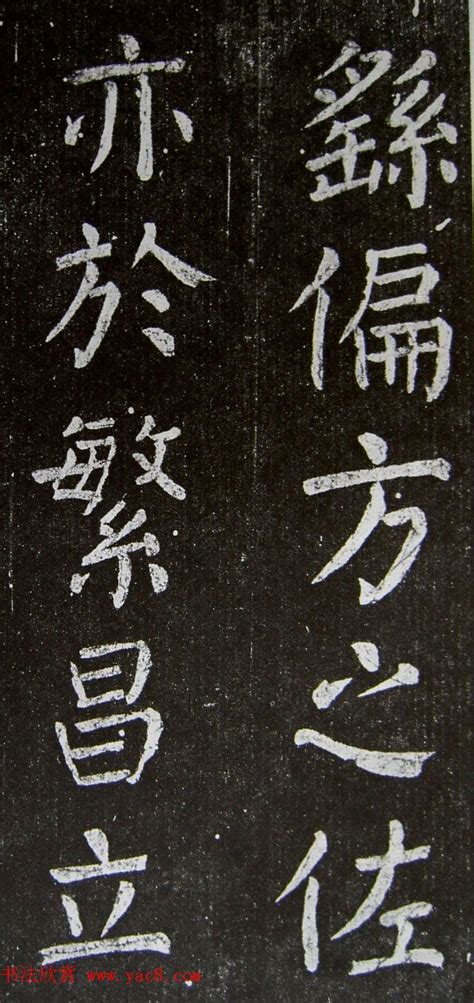 繇偏方之佐
亦於繁昌立
书法欣赏 www.yac8.com